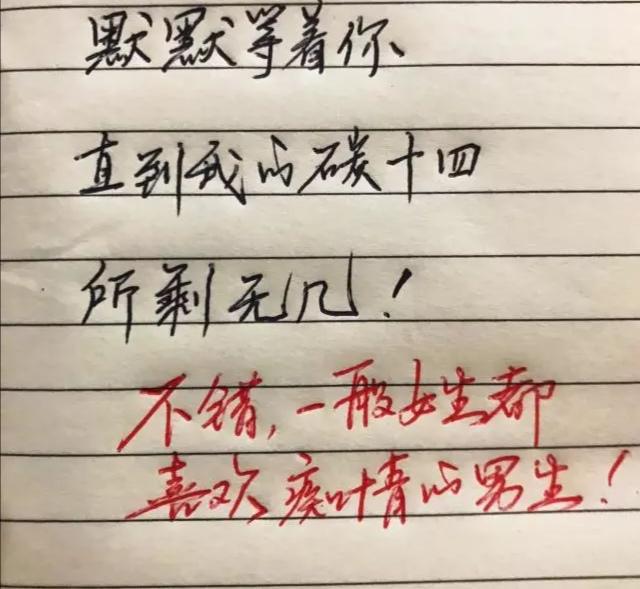 默默等着你
直到我的碳十四
所剩无几！
不错，一般女生都
喜欢痴情的男生！